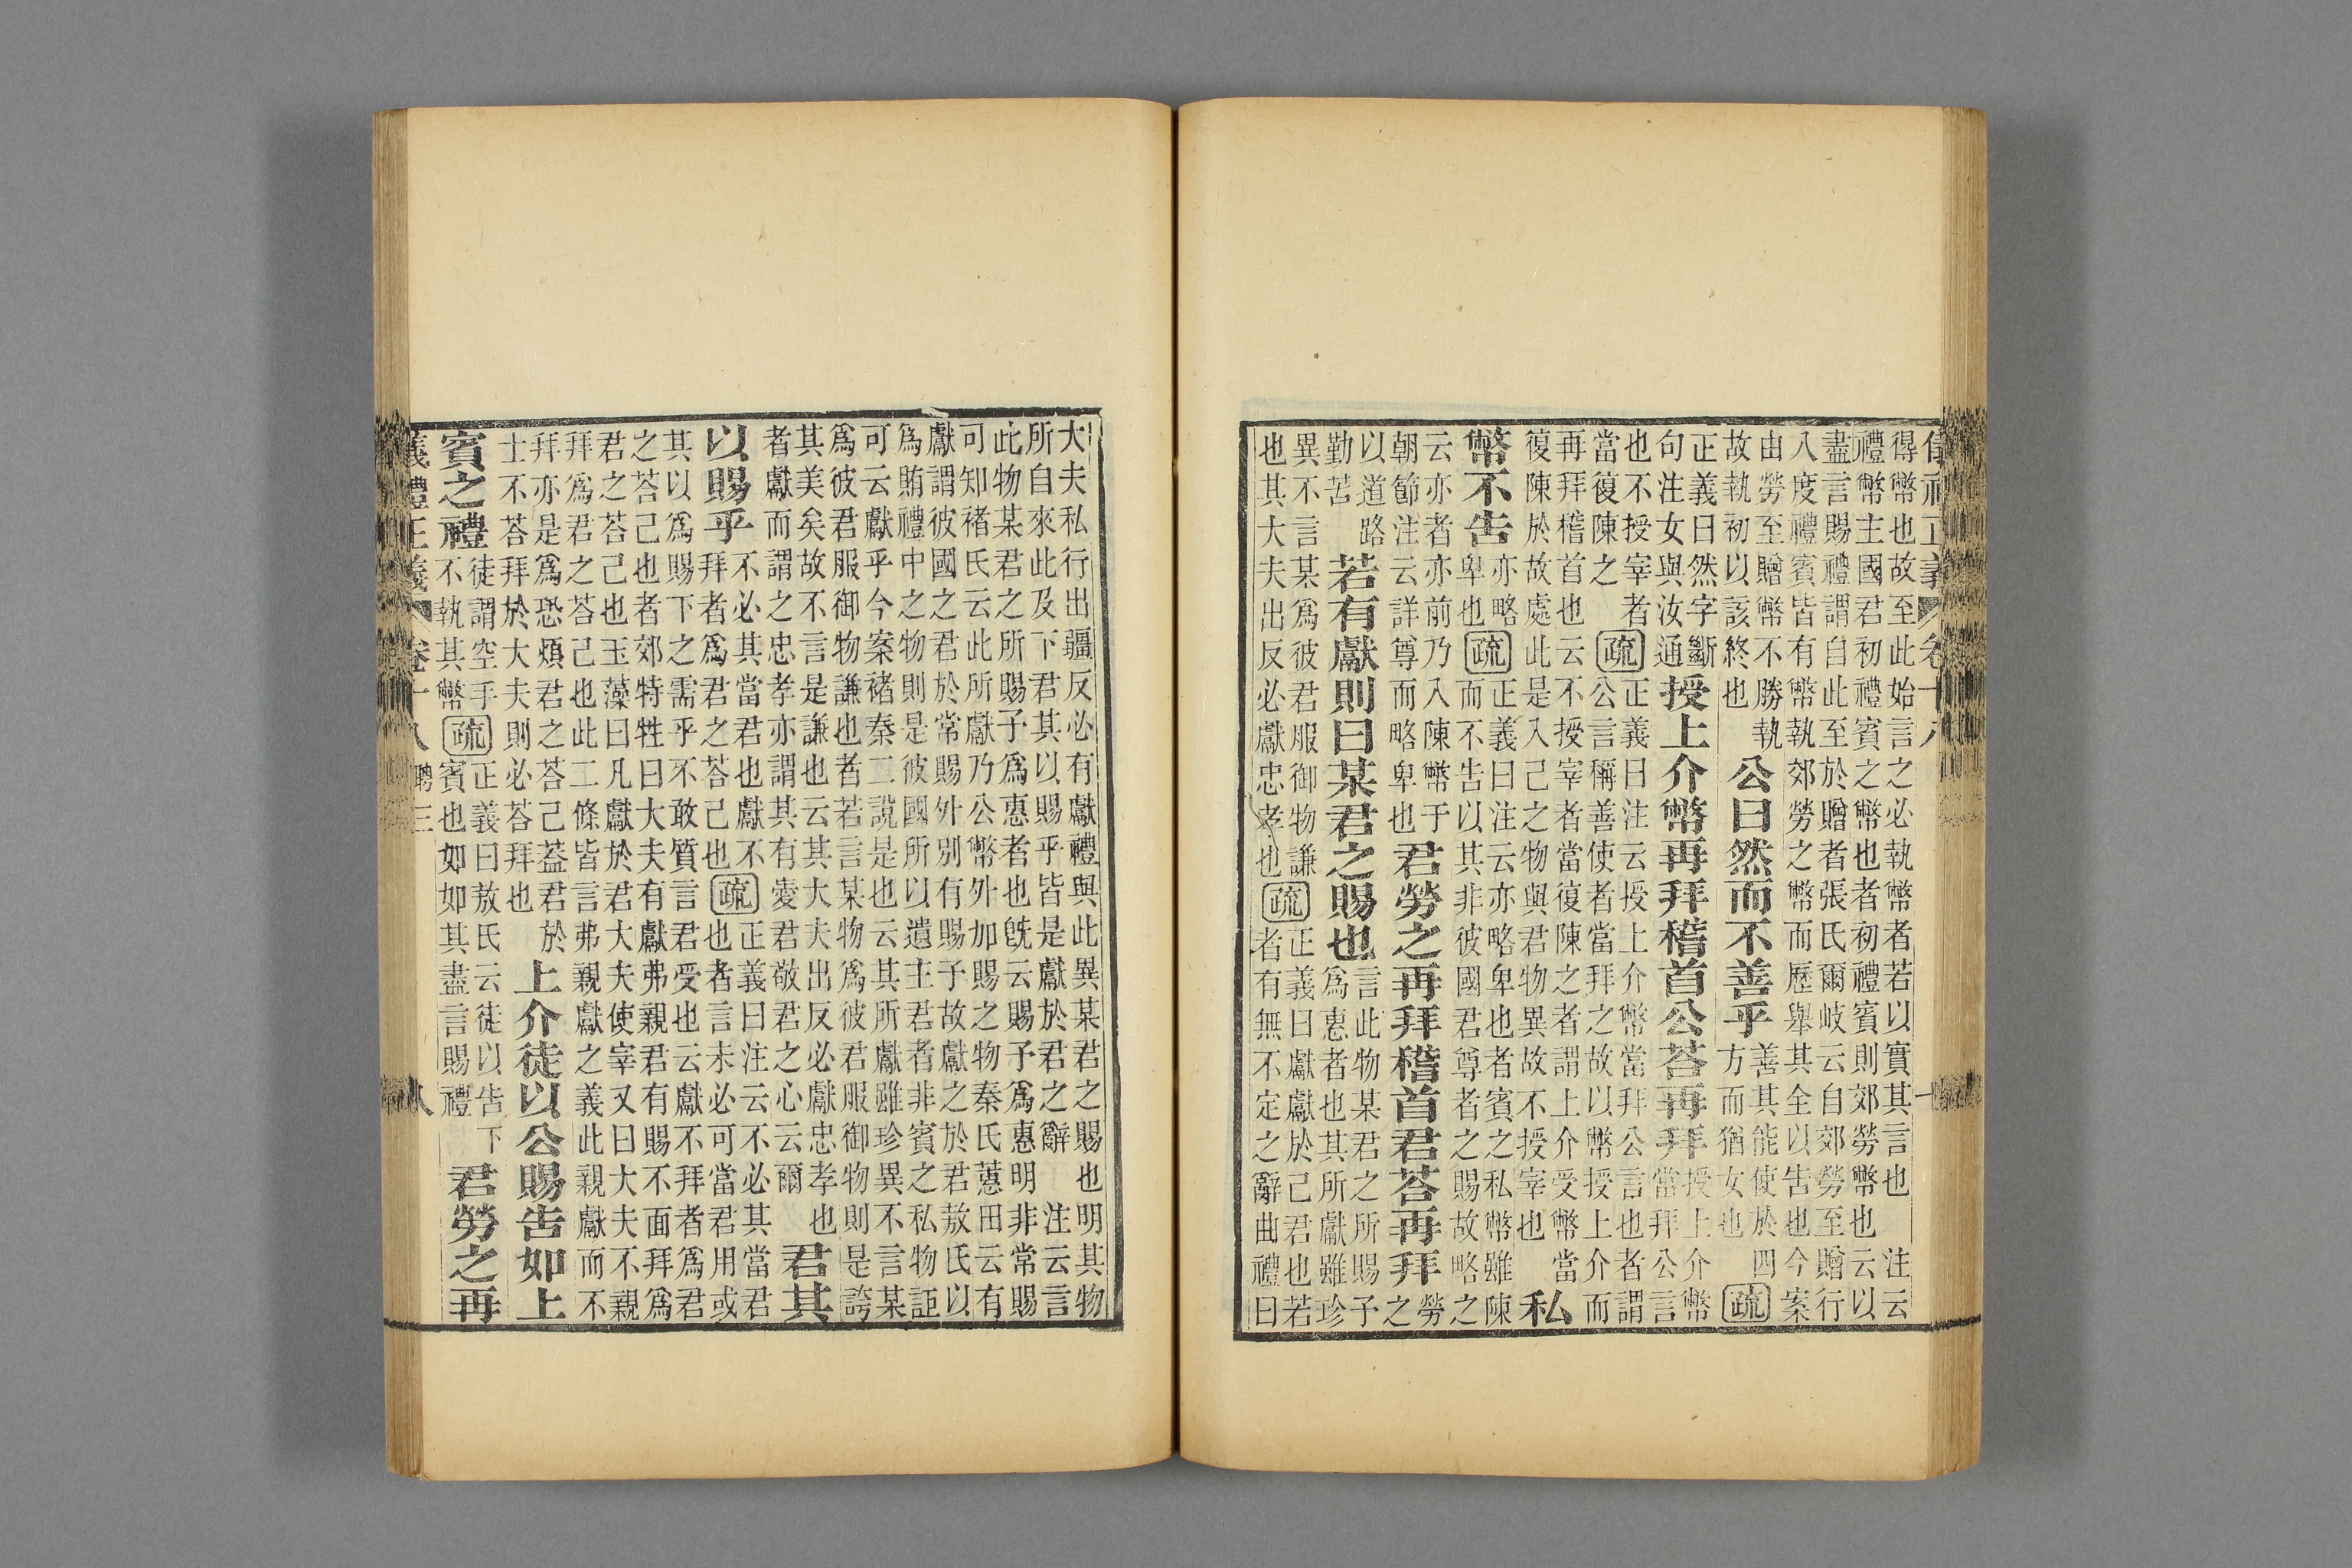 儀禮正義 卷十八
得幣也故至此始言之必執幣者若以實其言也 注云
禮幣主國君初禮賓之幣也者初禮賓則郊勞幣也云以
盡言賜禮謂自此至於贈者張氏爾岐云自郊勞至贈行
入度禮賓皆有幣執郊勞之幣而歷舉其全以告也今案
由勞至贈幣不勝執故執初以該終也 公曰然而不善乎 善其能使於四方而猶女也 疏
正義曰然字斷句注女與汝通 授上介幣再拜稽首公荅再拜 授上介幣當拜公言
也不授宰者當復陳之 疏 正義曰注云授上介幣當拜公言也者謂公言稱善使者當拜之故以幣授上介而
再拜稽首也云不授宰者當復陳之者謂上介受幣當復陳於故處此是入己之物與君物異故不授宰也 私
幣不告 亦略卑也 疏 正義曰注云亦略卑也者賓之私幣雖陳而不告以其非彼國君尊者之賜故略之
云亦者亦前乃入陳幣于朝節注云詳尊而略卑也 君勞之再拜稽首君荅再拜 勞之
以道路勤苦 若有獻則曰某君之賜也 言此物某君之所賜予爲惠者也其所獻雖珍
異不言某爲彼君服御物謙也其大夫出反必獻忠孝也 疏 正義曰獻獻於己君也若者有無不定之辭曲禮曰
大夫私行出疆反必有獻禮與此異某君之賜也明其物
所自來此及下君其以賜乎皆是獻於君之辭 注云言
此物某君之所賜予爲惠者也旣云賜予爲惠明非常賜
可知褚氏云此所獻乃公幣外加賜之物秦氏蕙田云有
獻謂彼國之君於常賜外別有賜予故獻之於君敖氏以
爲賄禮中之物則是彼國所以遺主君者非賓之私物詎
可云獻乎今案褚秦二說是也云其所獻雖珍異不言某
爲彼君服御物謙也者若言某物爲彼君服御物則是誇
其美矣故不言是謙也云其大夫出反必獻忠孝也
者獻而謂之忠孝亦謂其有愛君敬君之心云爾 君其
以賜乎 不必其當君也獻不拜者爲君之荅己也 疏 正義曰注云不必其當君也者言未必可當君用或
其以爲賜下之需乎不敢質言君受也云獻不拜者爲君
之荅己也者郊特牲曰大夫有獻弗親君有賜不面拜爲
君之荅己也玉藻曰凡獻於君大夫使宰又曰大夫不親
拜爲君之荅己也此二條皆言弗親獻之義此親獻而不
拜亦是爲恐煩君之荅己葢君於士不荅拜於大夫則必荅拜也 上介徒以公賜告如上
賓之禮 徒謂空手不執其幣 疏 正義曰敖氏云徒以告下賓也如如其盡言賜禮 君勞之再
義禮正義 卷十八 聘三 八